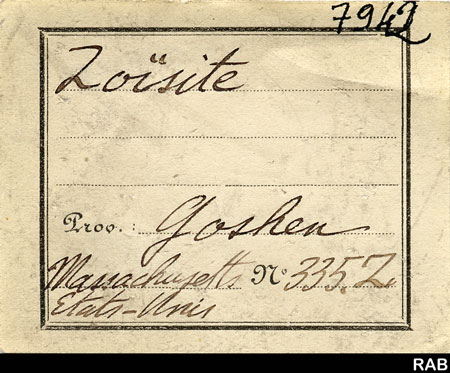 7942
Zoïsite
Prov. : Goshen
Massachusetts. Nº 335.Z
Etats-Unis
RAB